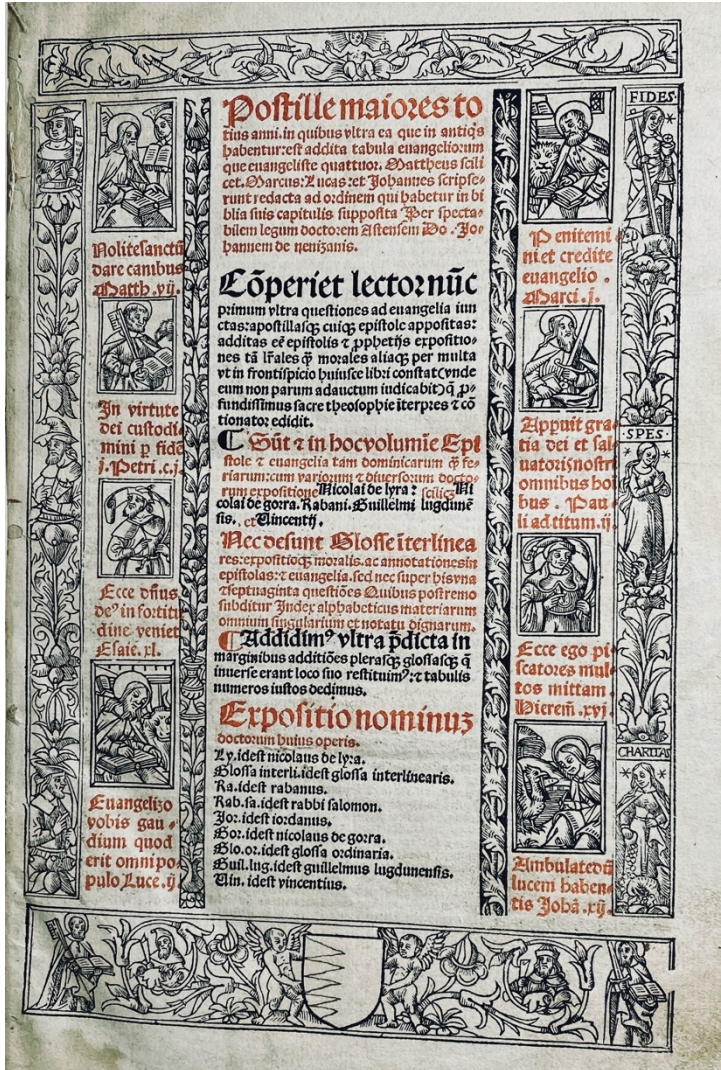 Nolite sanctū
dare canibus
Matth .vij.
In virtute
dei custodi
mini p fidē
j. Petri .c.j.
Ecce dñus
de⁹ in fortitu
dine veniet
Esaie. xl.
Euangelizo
vobis gau
dium quod
erit omni po
pulo Luce .ij
Postille maiores to
tius anni. in quibus vltra ea que in antiq̄s
habentur: est addita tabula euangeliorum
que euangeliste quattuor. Mattheus scili
cet. Marcus: Lucas: et Johannes scripse
runt redacta ad ordinem qui habetur in bi
blia suis capitulis supposita Per specta
bilem legum doctorem Astensem Do. Jo
hannem de nenizanis.
Cōperiet lector nūc
primum vltra questiones ad euangelia iun
ctas: apostillasqʒ cuiqʒ epistole appositas:
additas eē epistolis ⁊ ꝓphetijs expositio
nes tā lr̄ales ꝙ̄ morales aliaqʒ per multa
vt in frontispicio huiusce libri constat (vnde
eum non parum adauctum iudicabit) q̄ ꝓ
fundissimus sacre theosophie īterpres ⁊ cō
tionator edidit.
Sūt ⁊ in hoc volumīe Epi
stole ⁊ euangelia tam dominicarum ꝙ̄ fe
riarum: cum variorum ⁊ diuersorum docto
rum expositione Nicolai de lyra: scilicʒ Ni
colai de gorra. Rabani. Guillelmi lugdunē
sis. et Vincentij.
Nec desunt Glosse īterlinea
res: expositioqʒ moralis. ac annotationes in
epistolas: ⁊ euangelia. sed nec super his vna
⁊ septuaginta questiōes Quibus postremo
subditur Index alphabeticus materiarum
omnium singularium et notatu dignarum.
Addidim⁹ vltra p̄dicta in
marginibus additiōes plerasqʒ glossasqʒ q̄
inuerse erant loco suo restituim⁹: ⁊ tabulis
numeros iustos dedimus.
Expositio nominuʒ
doctorum huius operis.
Ly. idest nicolaus de lyra.
Glossa interli. idest glossa interlinearis.
Ra. idest rabanus.
Rab. sa. idest rabbi salomon.
Jor. idest iordanus.
Gor. idest nicolaus de gorra.
Glo. or. idest glossa ordinaria.
Guil. lug. idest guillelmus lugdunensis.
Vin. idest vincentius.
Penitemi
ni et credite
euangelio.
Marci. j.
Appuit gra
tia dei et sal
uatoris nostri
omnibus ho
ibus. Pau
li ad titum. ij.
Ecce ego pi
scatores mul
tos mittam
Hierem̄. xvj
Ambulate dū
lucem haben
tis Johā. xij.
FIDES
SPES
CHARITAS